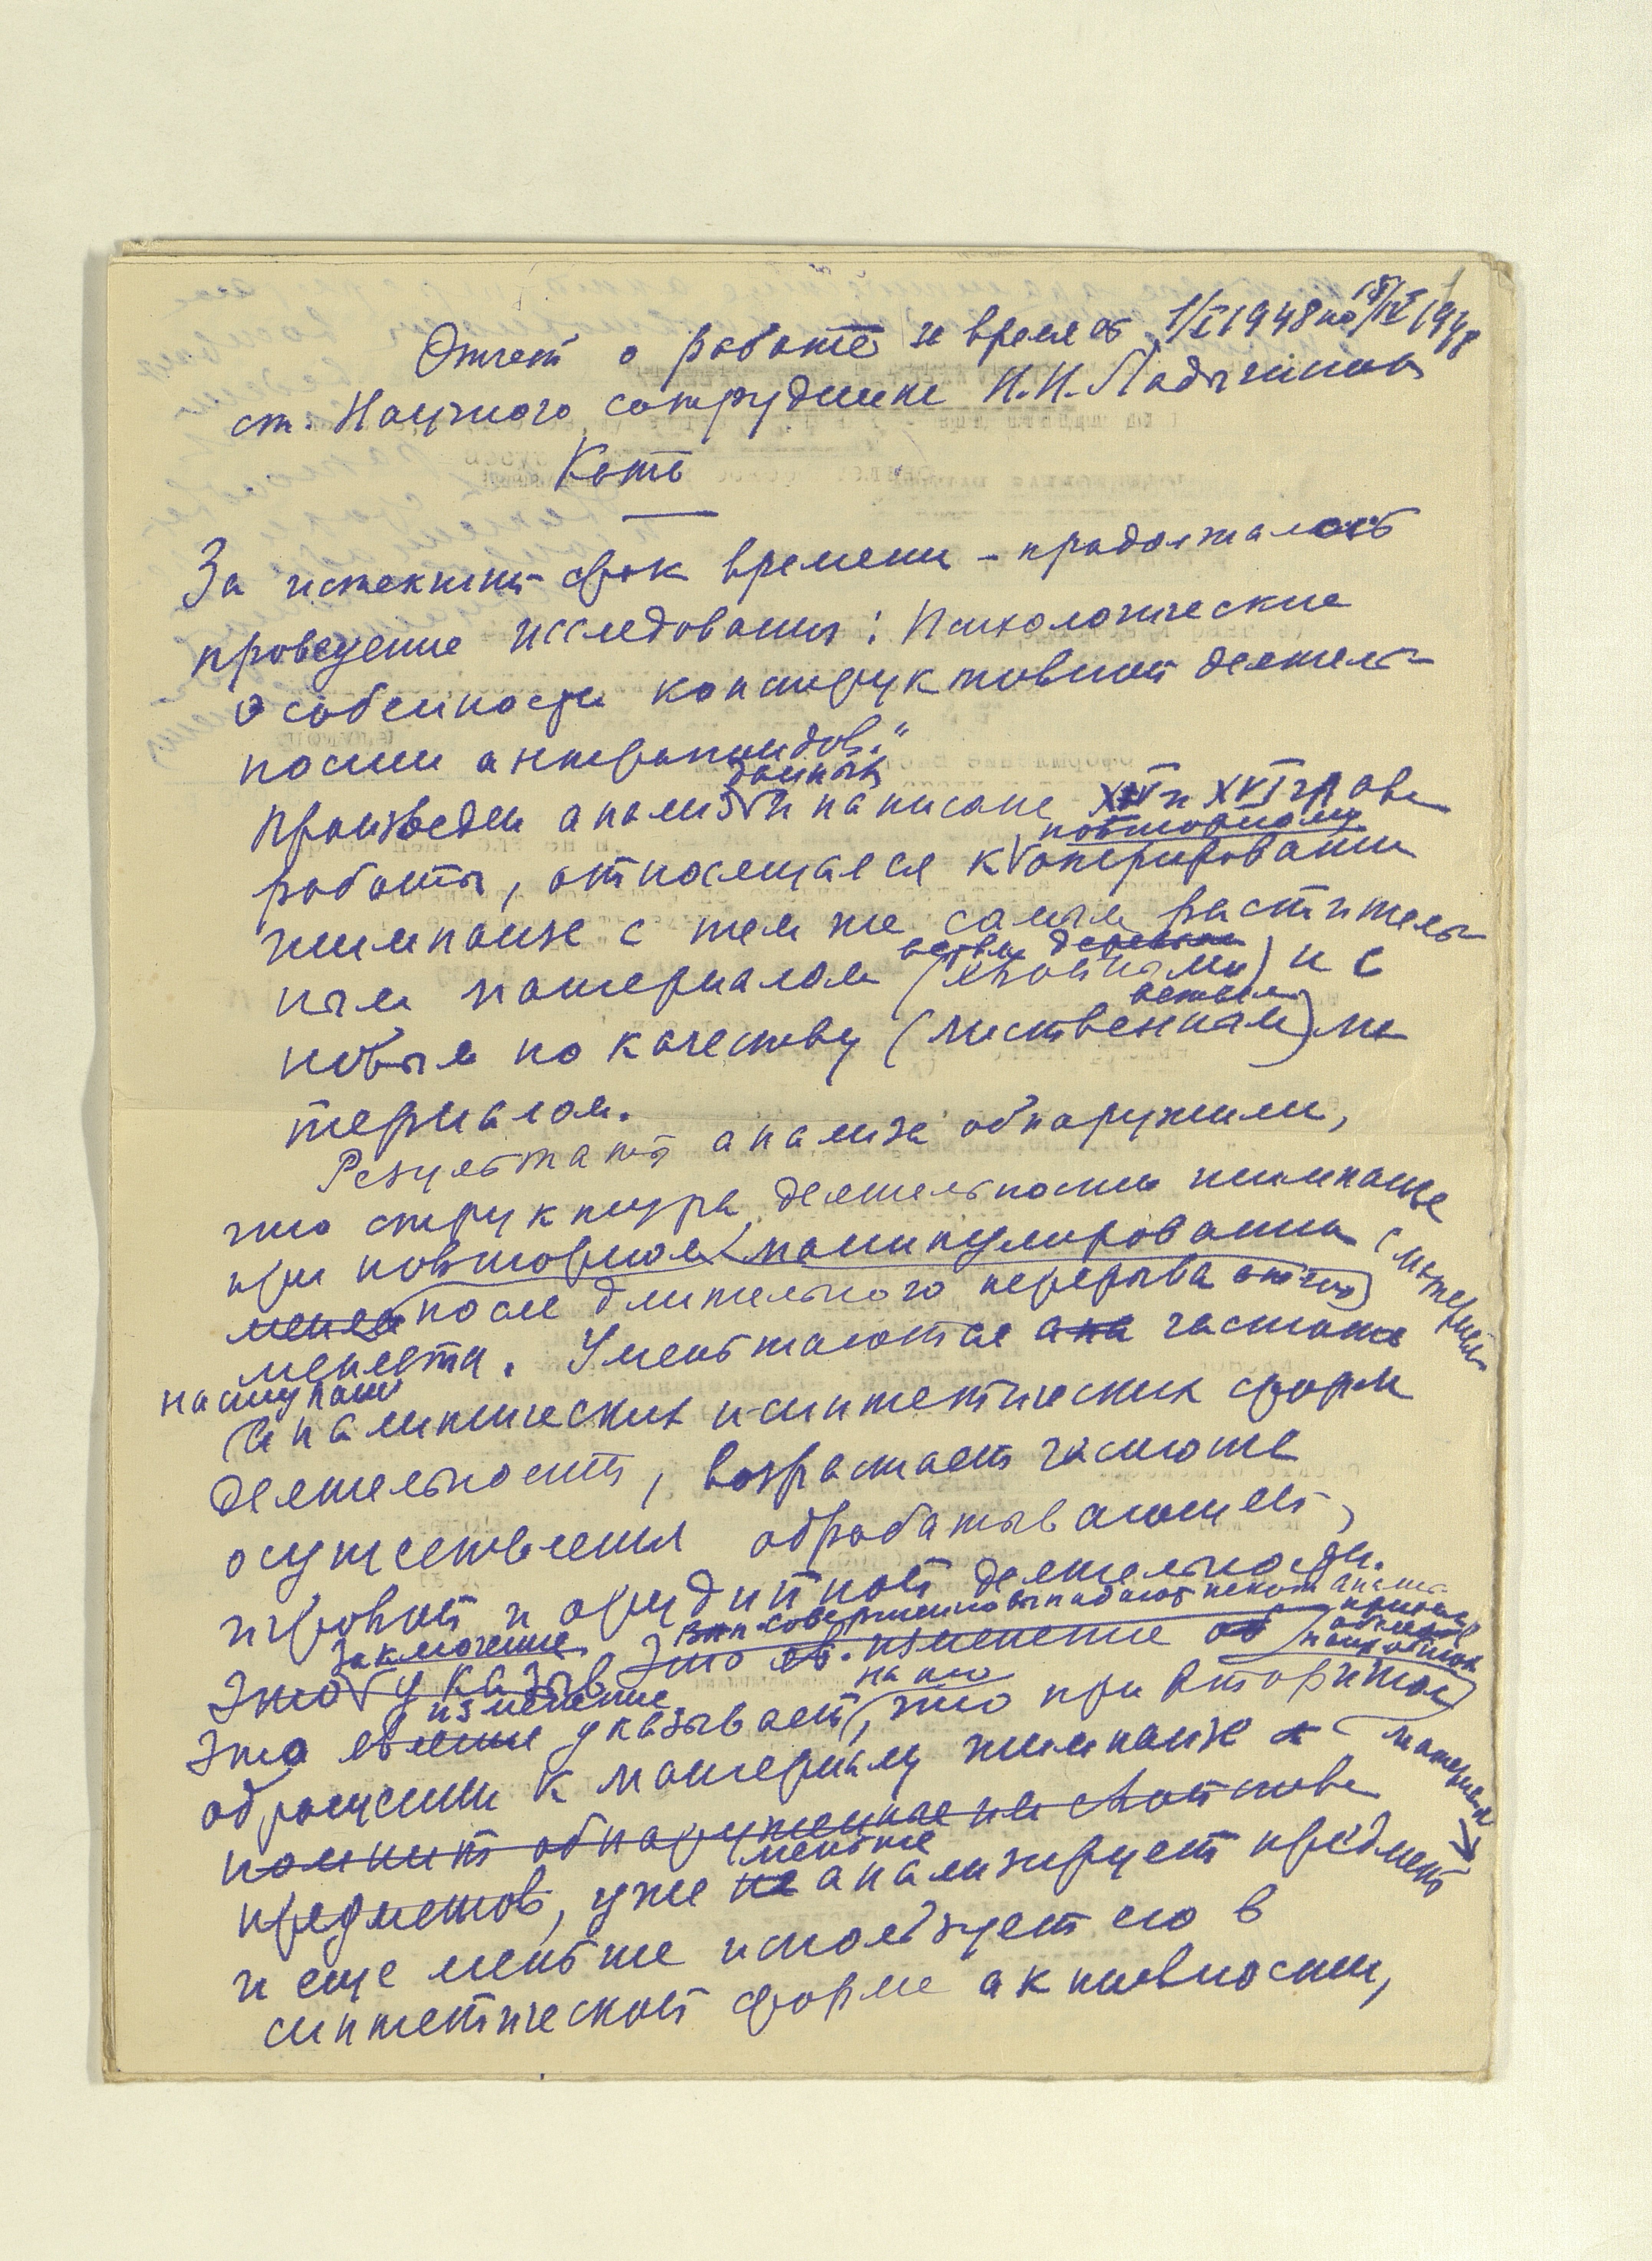 Отчет о работе за время от 1/I 1948 по 15/IV 1948
ст. Научного сотрудника Н.Н. Ладыгиной
Котс
За истекший срок времени – продолжалось
проведение исследования: Психологические
особенности конструктивной деятель-
ности антропоидов."
Произведен анализ данных и написана XV и XVI глава
работы, относящаяся к повторному оперированию
шимпанзе с тем же самым раститель-
ным материалом (хвойными ветвями деревьев) и с
новым по качеству (лиственным ветвями) ма
териалом.
Результаты анализа обнаружили,
что структура деятельности шимпанзе
при повторном манипулировании с материалом
(после длительного перерыва
меняется. Уменьшаются частота
наступания
аналитических и синтетических форм
деятельности, возрастает частота
осуществления обрабатывающей,
игровой и орудийной деятельности.
совершенно выпадают
Это заключение Это изменение
Это изменение указывает на то, что при вторичном
обращении к материалу шимпанзе
помнит обнаруженные свойства
предметов, уже меньше анализирует предмет
и еще меньше использует его в
синтетической форме активности,